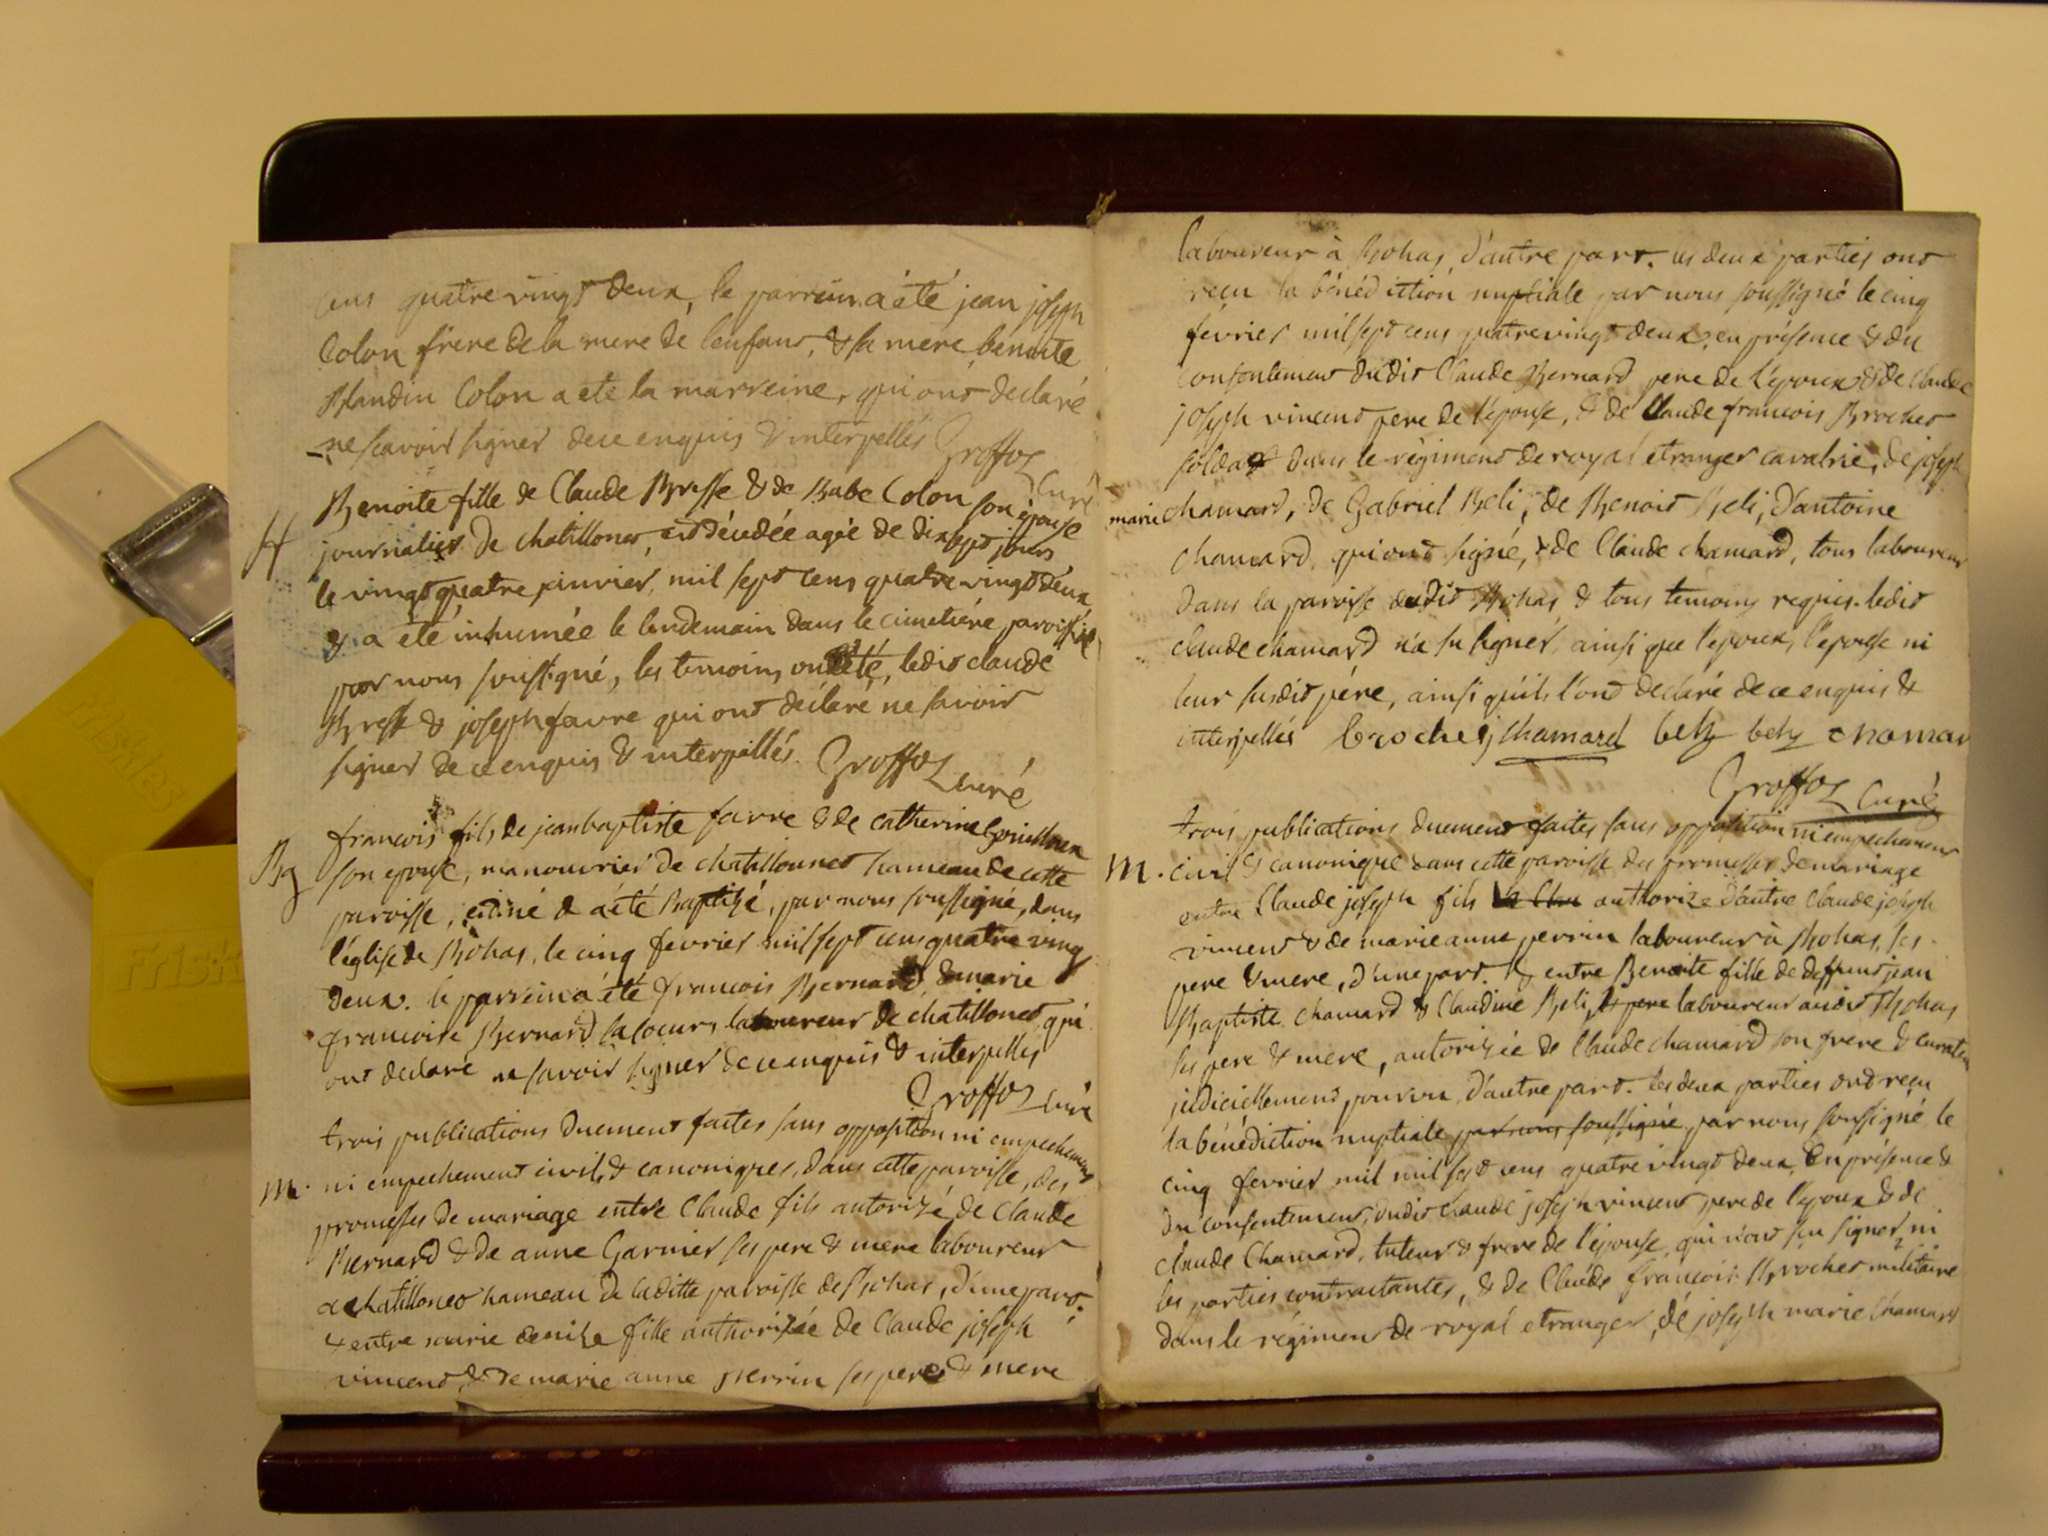 cens quatre vingt deux, le parrein a été jean joseph
Colon frere de la mere de l'enfant, & sa mere benoite
Blandin Colon a eté la marreine, qui ont declaré
ne scavoir signer de ce enquis & interpellés Groffoz
Curé
Benoite fille de Claude Bresse & de Babe Colon son épouse
H journalier de chatillonet, est décédée agée de dix sept jours
le vingt quatre janvier, mil sept cens quatre vingt deux
& a été inhumée le lendemain dans le cimetiére paroissial
par nous soussigné, les temoins ont été, ledit claude
Bresse & joseph favre qui ont déclaré ne savoir
signer de ce enquis & interpellés. Groffoz curé
francois fils de jean baptiste favre & de catherine
Bg son epouse, manouvrier de chatillonnet hameau de cette
paroisse, est né & a été Baptisé, par nous soussigné, dans
l'église de Bohas, le cinq fevrier mil sept cens quatre ving
deux. le parrein a été francois Bernard, & marie
francoise Bernard sa soeur, laboureur de chatillonet qui
ont declaré ne savoir signer de ce enquis & interpellés
Groffoz curé
trois publications duement faites sans opposition ni empechement
M. ni empechement civil & canoniques, dans cette paroisse, des
promesses de mariage entre Claude fils autorizé de Claude
Bernard & de anne Garnier ses pere & mere laboureur
a chatillonet hameau de laditte paroisse de Bohas, d'une part.
& entre marie denise fille authorizée de Claude joseph
vincent & de marie anne perrin ses pere & mere
laboureur à Bohas, d'autre part. les deux parties ont
reçu la bénédiction nuptiale par nous soussigné le cinq
février mil sept cens quatre vingt deux, en présence & du
consentement dudit Claude Bernard pere de l'epoux & de Claude
joseph vincent pere de l'épouse, & de Claude francois Brochet
soldat dans le régiment de royal etranger cavalrie, de joseph
marie chamard, de Gabriel Beli, de Benoit Beli, d'antoine
chamard, qui ont signé, & de Claude chamard, tous laboureur
dans la paroisse dudit Bohas & tous temoins requis. ledit
claude chamard n'a su signer, ainsi que l'epoux, l'epouse ni
leur susdit pére, ainsi qu'ils l'ont declaré de ce enquis &
interpellés Brochet j chamard bely bely chamar
Groffoz Curé
trois publications duement faites sans opposition ni empechement
M. civil & canonique dans cette paroisse des promesses de mariage
entre Claude joseph fils authorize d'autre Claude joseph
vincent & de marie anne perrin laboureur à Bohas, ses
pere & mere, d'une part. & entre Benoite fille de deffunt jean
Baptiste chamard & Claudine Beli, & pere laboureur audit Bohas
ses pere & mere, autorizée de Claude chamard son frere & curateur
judiciellement pourvu, d'autre part. les deux parties ont reçu
la bénédiction nuptiale par nous soussigné, par nous soussigné le
cinq fevrier mil mil sept cens quatre vingt deux, En présence &
du consentement, dudit claude joseph vincent pere de l'epoux & de
claude Chamard, tuteur & frere de l'épouse, qui n'ont su signer, ni
les parties contractantes, & de Claude françois Brochet militaire
dans le régiment de royal etranger, de joseph marie Chamard